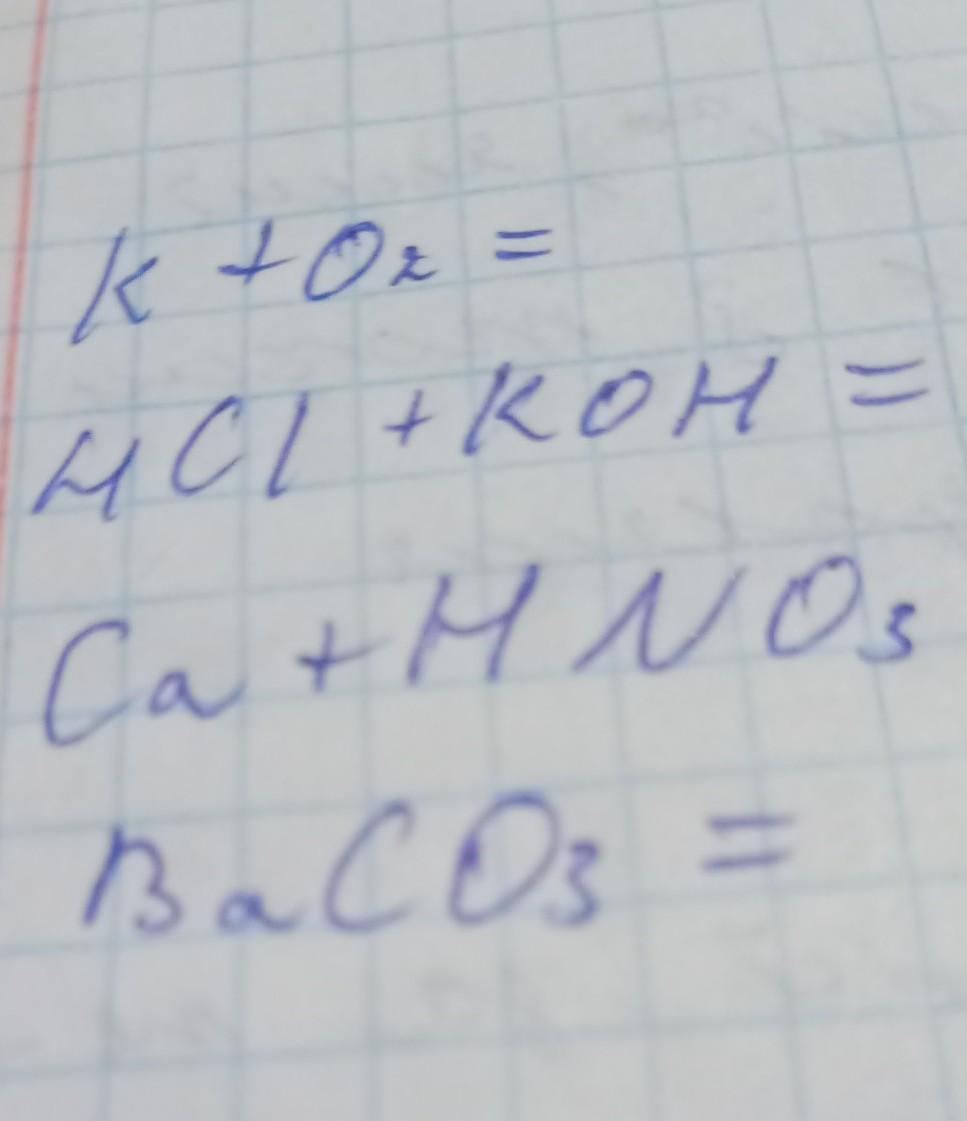 K + O₂ =
HCl + KOH =
Ca + HNO₃
BaCO₃ =